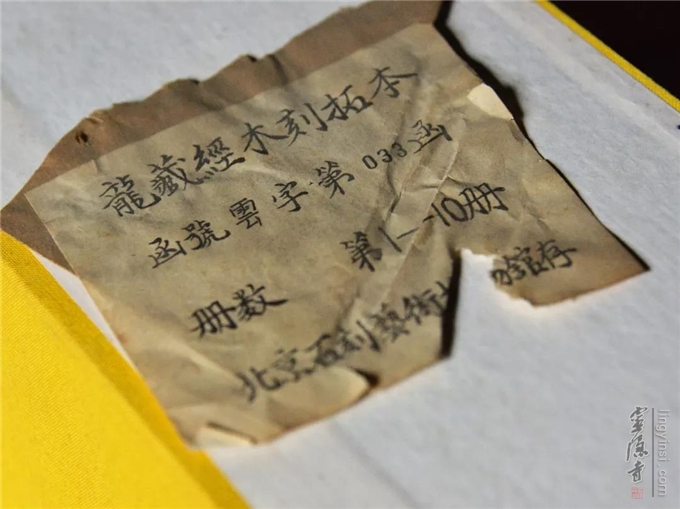 龍藏經木刻拓本
函號雲字第033函
册数 第1—10册
北京石刻藝術 館存
靈隱寺
lingyinsi.com